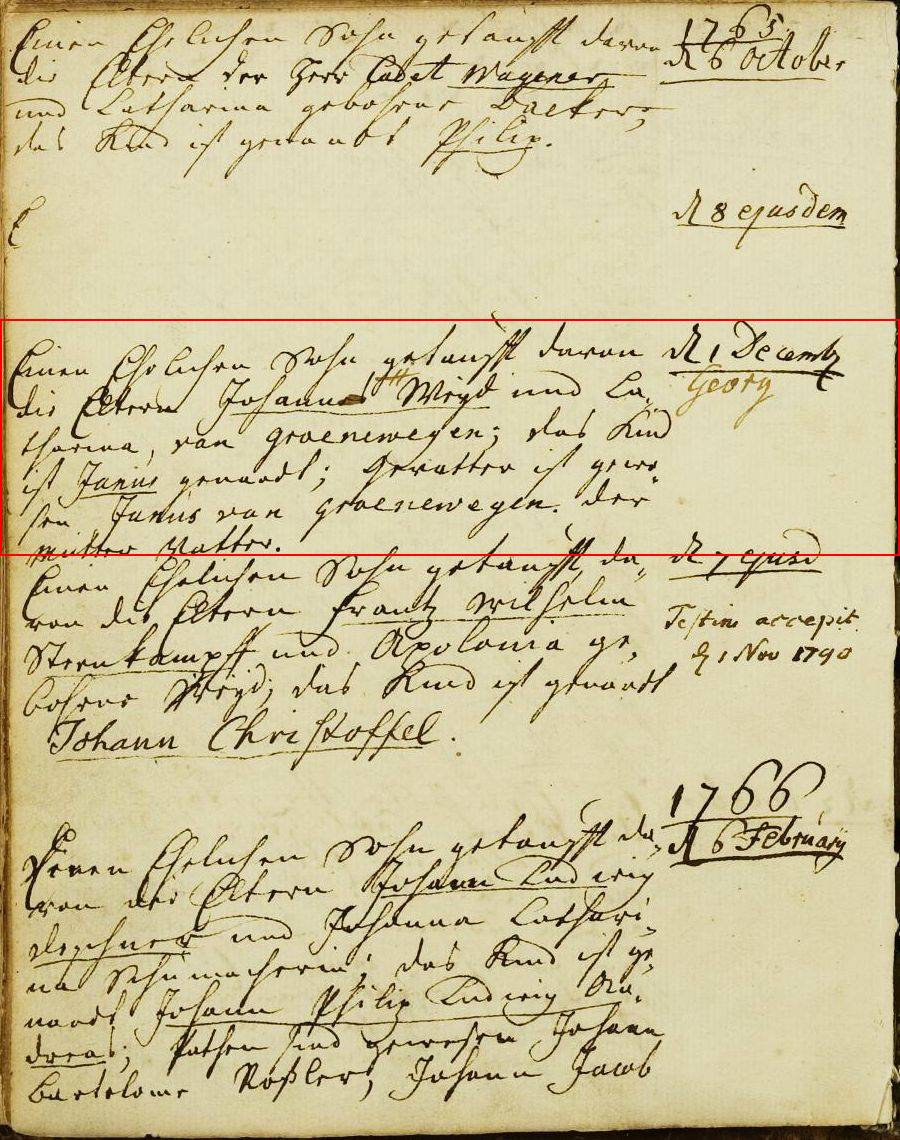 1765
Einen Ehelichen Sohn getaufft davon
d 6 October
die Eltern der Herr Cadet Wagener
und Catharina gebohrne Backer;
das Kind ist genandt Philip.
E
d 8 ejusdem
Einen Ehelichen Sohn getaufft davon
d 1 Decembr
die Eltern Johannes Weyd und Ca,
Georg
tharina, van Groenewegen; das Kind
ist Janus genandt; Gevatter ist gewe
sen Janus van Groenewegen. der
Mutter Vatter.
Einen Ehelichen Sohn getaufft, da,
d 7 ejusd
von die Eltern Frantz Wilhelm
Testim accepit
Sternkampff und Apolonia ge,
d 1 Nov 1790
bohrne Weyd; das Kind ist genandt
Johann Christoffel.
1766
Einen Ehelichen Sohn getaufft da,
d 6 February
von die Eltern Johann Ludwig
und Johanna Cathari
na Schumacherin; das Kind ist ge,
nandt Johann Philip Ludwig An,
dreas; Pathen sind gewesen Johann
Bartolome Roßler, Johann Jacob